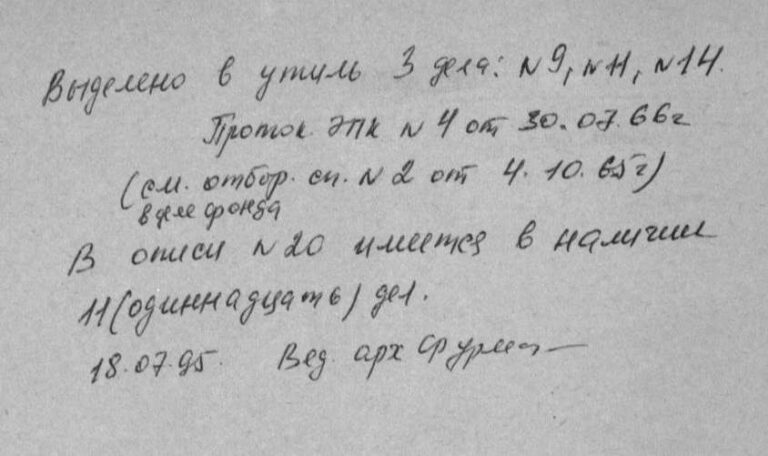 Выделено в утиль 3 дела: №9, №11, №14.
Проток. ЭПК №4 от 30.07.66г
(см. отбор. сп. №2 от 4.10.65г)
в деле фонда
В описи №20 имеется в наличии
11 (одиннадцать) дел.
18.07.95. Вед. арх